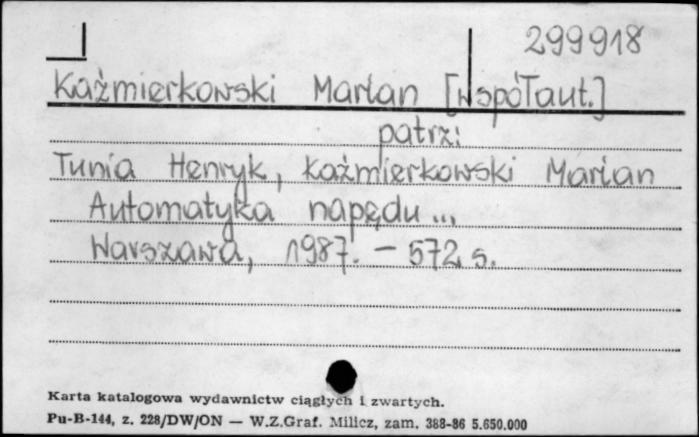 299918
Kaźmierkowski Marian [Współaut.]
patrz:
Tunia Henryk, Kaźmierkowski Marian
Automatyka napędu ...,
Warszawa, 1987. – 572 s.
Karta katalogowa wydawnictw ciągłych i zwartych.
Pu-B-144, z. 228/DW/ON — W.Z.Graf. Milicz, zam. 388-86 5.650.000